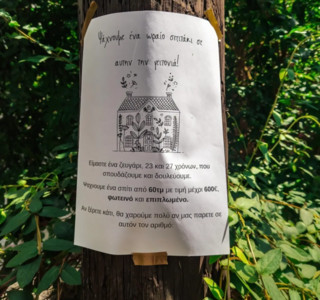 Ψάχνουμε ένα ωραίο σπιτάκι σε
αυτήν την γειτονιά!
Είμαστε ένα ζευγάρι, 23 και 27 χρόνων, που
σπουδάζουμε και δουλεύουμε.
Ψάχνουμε ένα σπίτι από 60τμ με τιμή μέχρι 600€,
φωτεινό και επιπλωμένο.
Αν ξέρετε κάτι, θα χαρούμε πολύ αν μας πάρετε σε
αυτόν τον αριθμό: